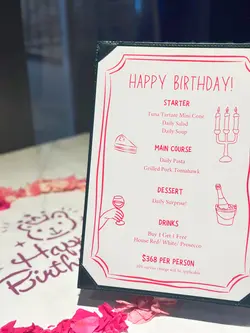 HAPPY BIRTHDAY!
STARTER
Tuna Tartare Mini Cone
Daily Salad
Daily Soup
MAIN COURSE
Daily Pasta
Grilled Pork Tomahawk
DESSERT
Daily Surprise!
DRINKS
Buy 1 Get 1 Free
House Red/ White/ Prosecco
$368 PER PERSON
10% service charge will be applicable
Happy
Birthd